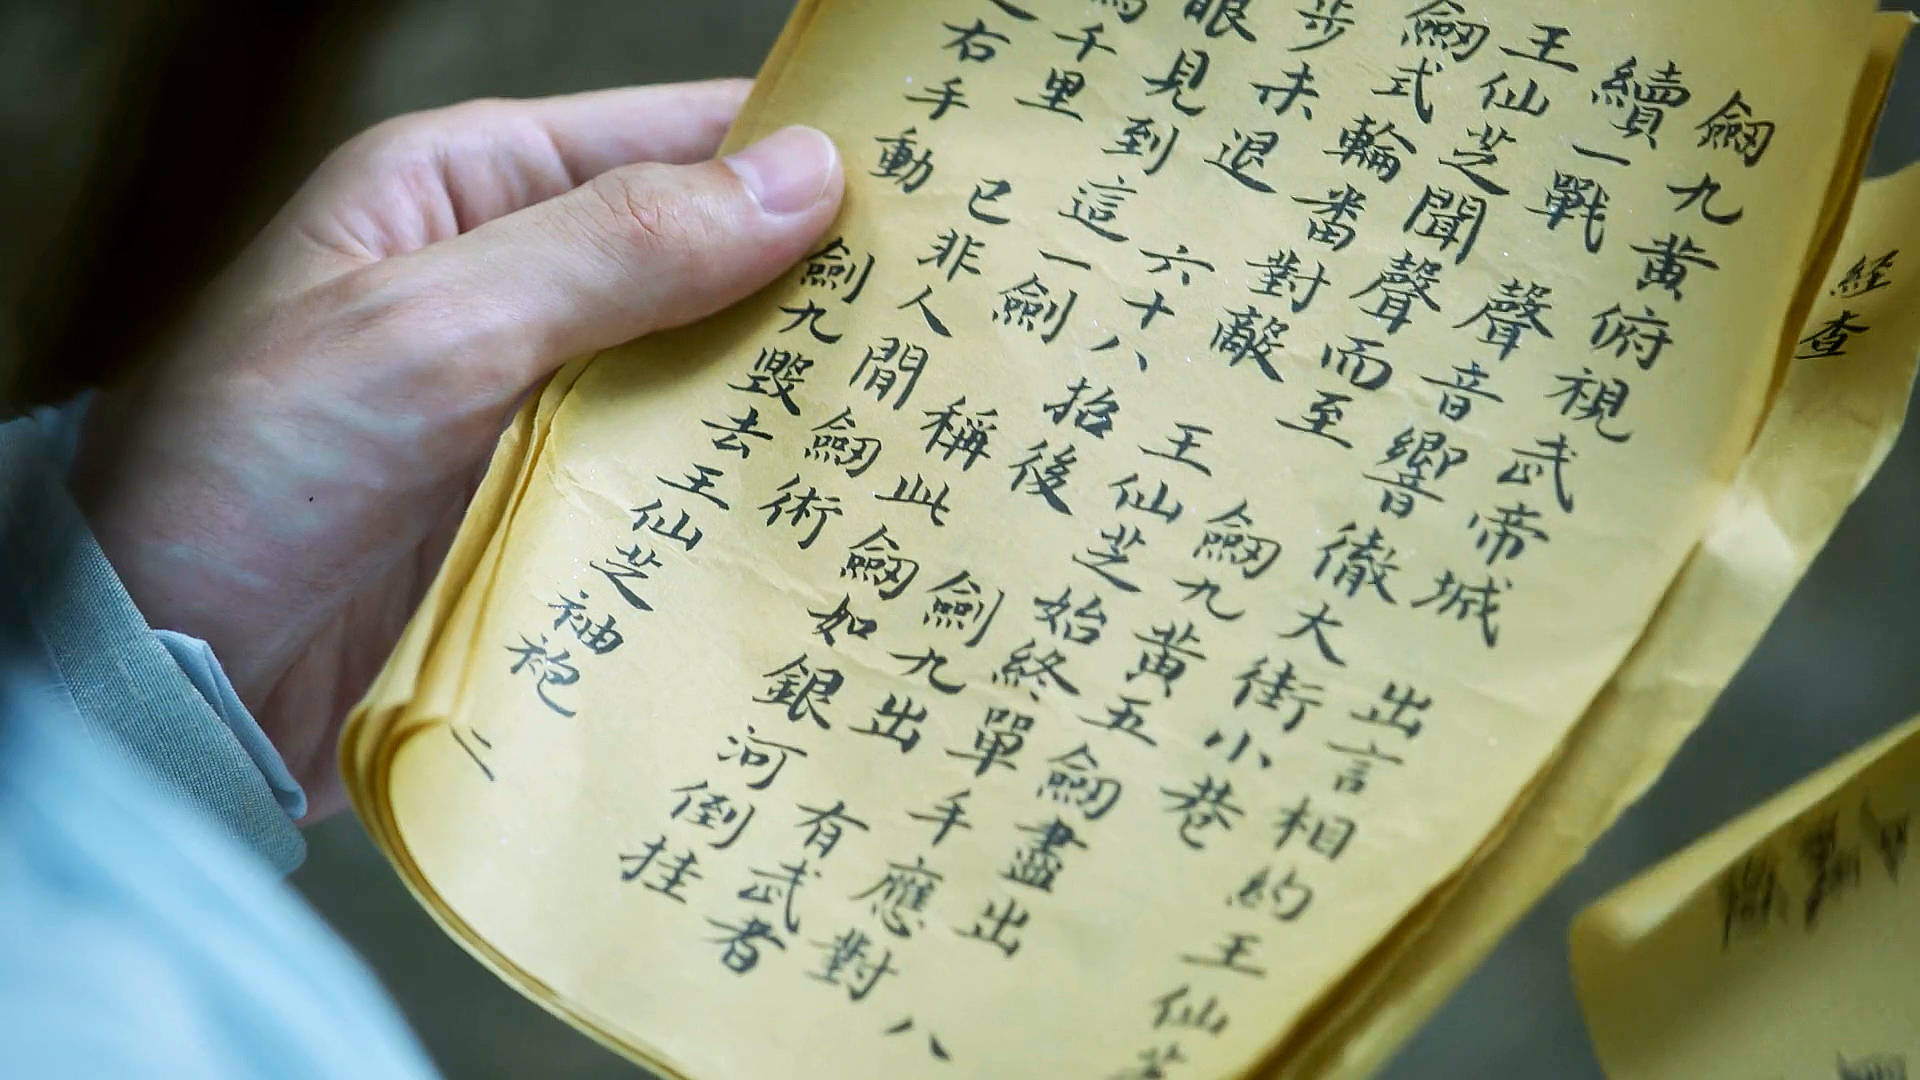 經查
劒九黃俯視武帝城 出言相約王仙芝
續一戰 聲音響徹大街小巷
王仙芝聞聲而至 劒九黃五劒盡出 八
劒式輪番對敵 王仙芝始終單手應對
步未退 六十八招後 劍九出 有武者
眼見到這一劍 稱此劒如銀河倒挂
千里 已非人間劒術
右手動 劍九毀去王仙芝袖袍 二